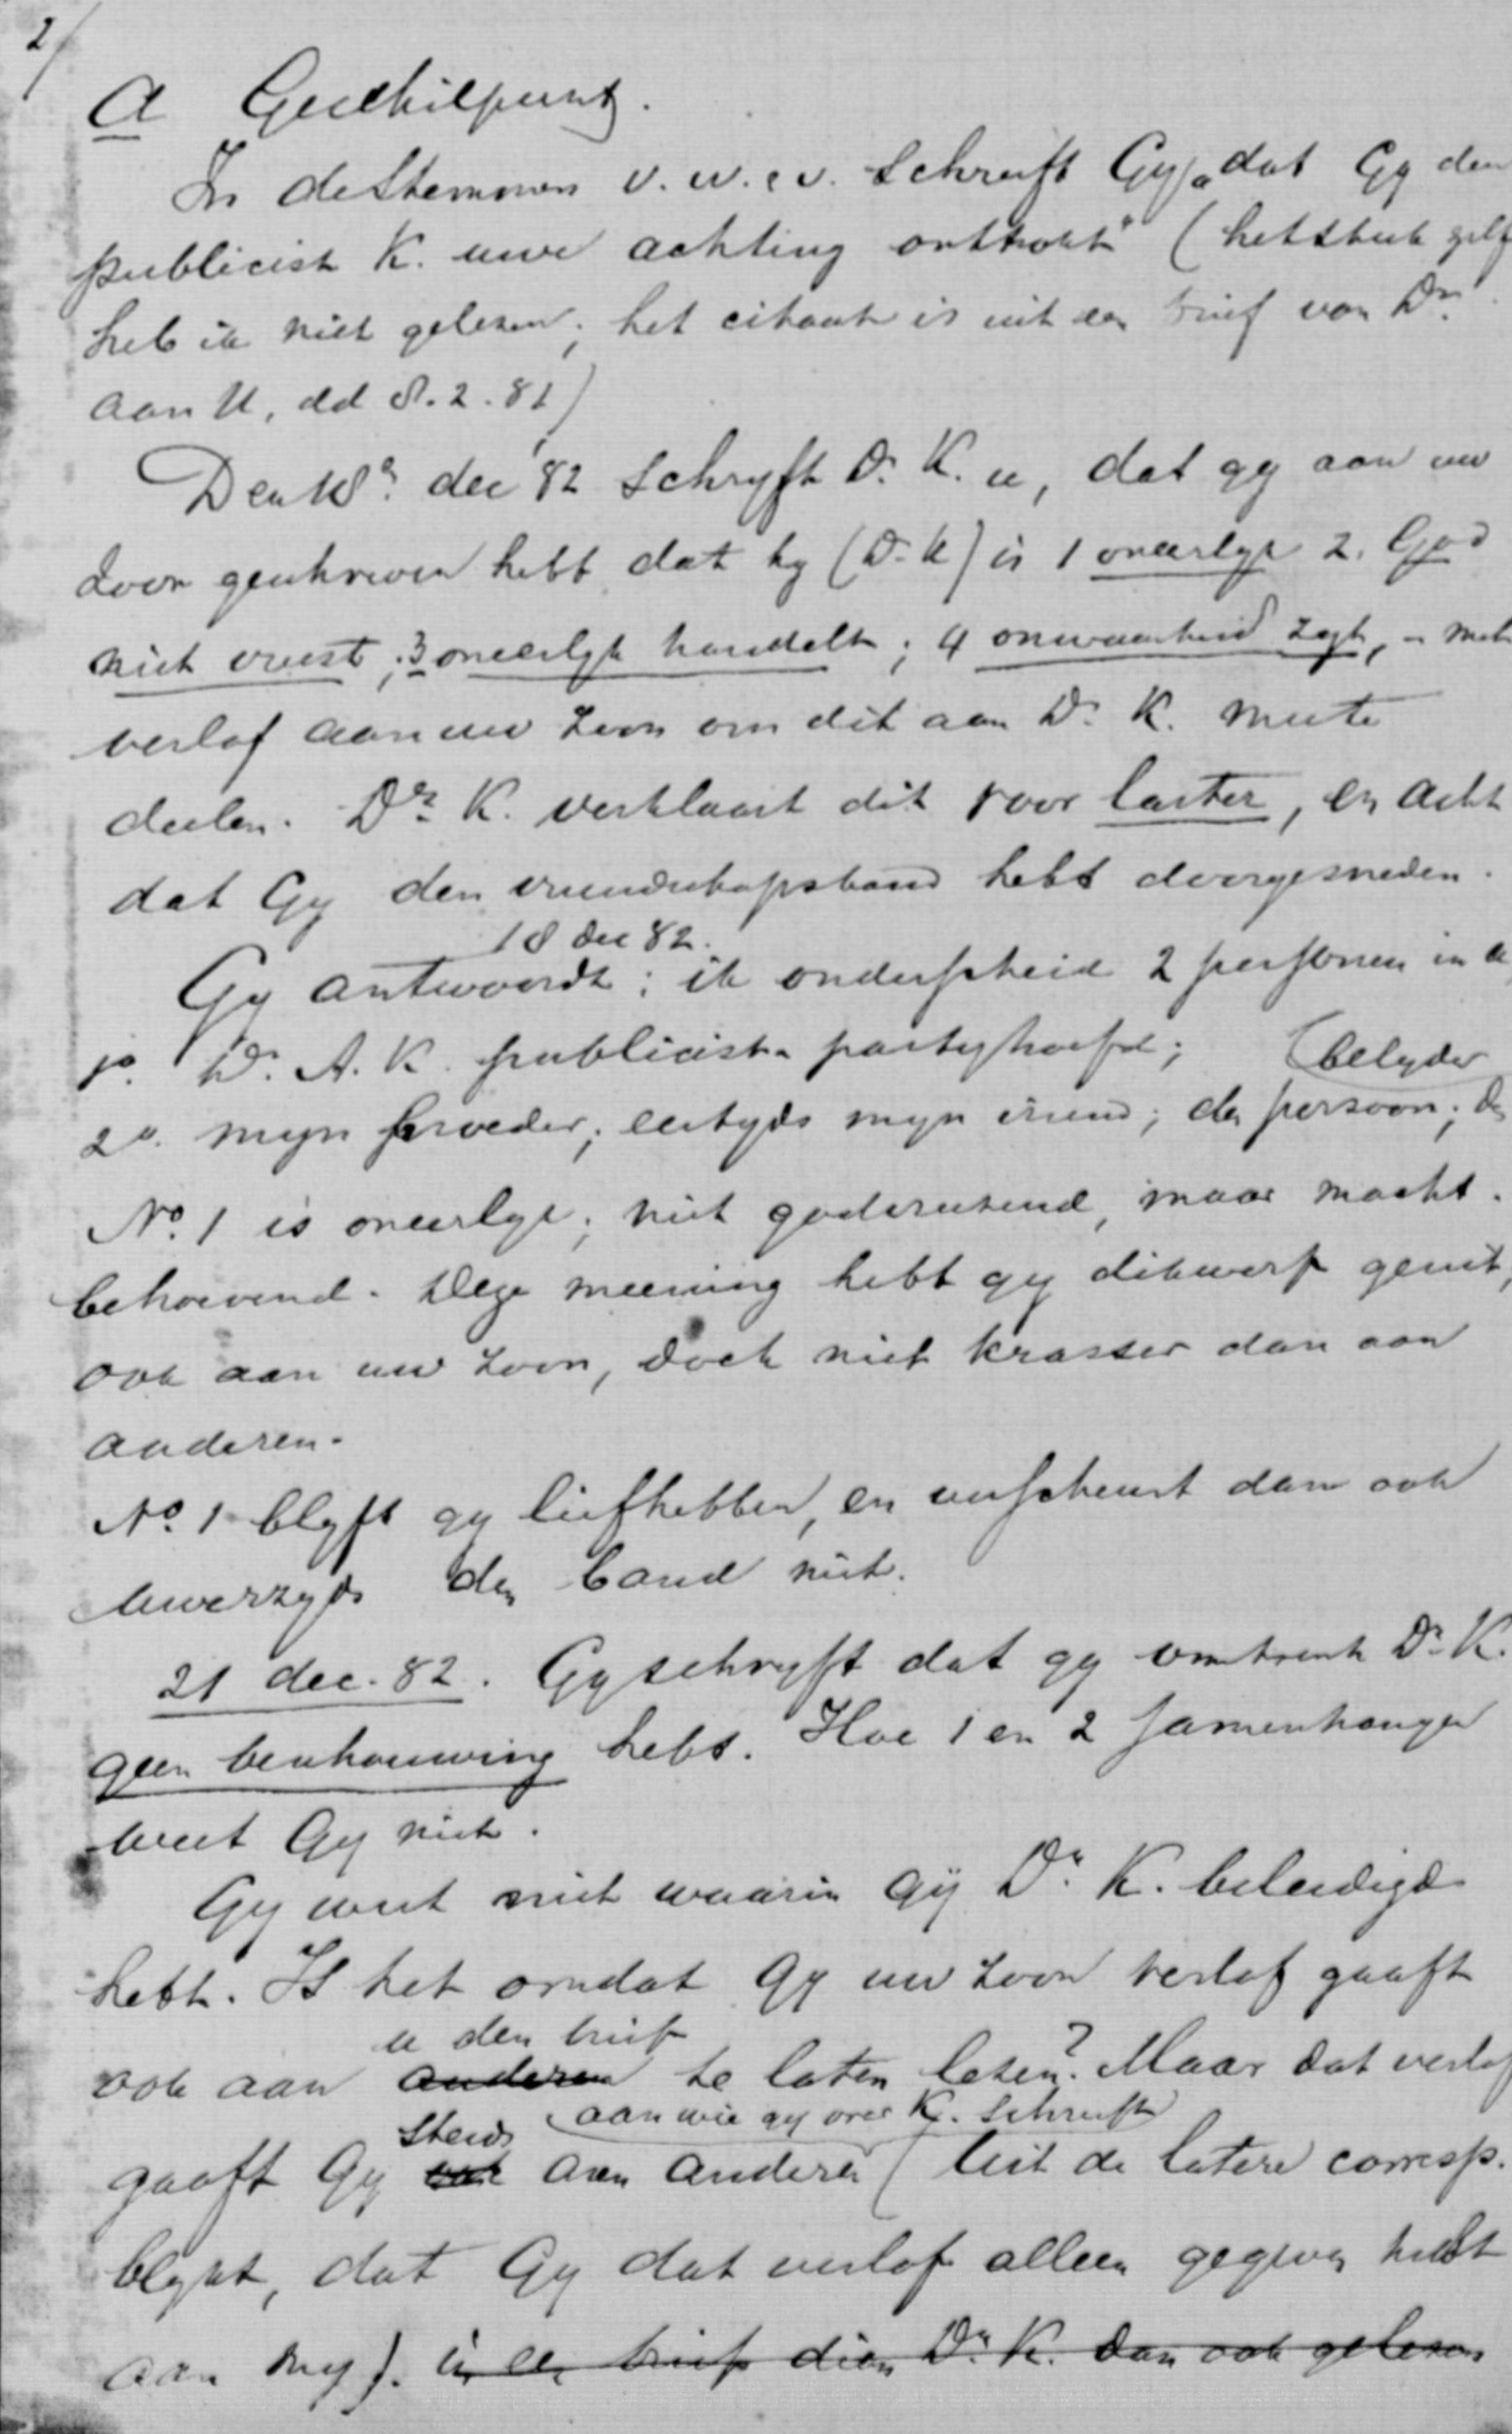 2/
A Geschilpunt.
In de Stemmen v. w. e v. schreeft Gy „dat Gy den
publicist K. uwe achting onttrokt" (het stuk zelf
heb ik niet gelezen; het citaat is uit een brief van Dr.
aan U, dd 8.2.81)
Den 16e dec 82 schryft Dr. K. u, dat gy aan uw
zoon geschreven hebt dat hy (Dr. K) is 1 oneerlyk 2. God
niet vreest; 3 oneerlyk handelt; 4 onwaarheid zegt, - met
verlof aan uw zoon om dit aan Dr. K. mede te
deelen. Dr. K. verklaart dit voor laster, en acht
dat Gy den vriendschapsband hebt doorgesneden.
18 dec 82.
Gy antwoordt: ik onderscheid 2 personen in u
1o. Dr. A. K. publicist - partyhoofd;
(belyder
2o. myn broeder; eertyds myn vriend; de persoon; de
No. 1 is oneerlyk; niet godvreezend, maar macht-
behoevend. Deze meening hebt gy dikwerf geuit,
ook aan uw zoon, doch niet krasser dan aan
anderen.
No. 1 blyft gy liefhebben, en verscheurt dan ook
uwerzyds den band niet.
21 dec. 82. Gy schryft dat gy omtrent Dr. K.
geen beschouwing hebt. Hoe 1 en 2 samenhangen
weet Gy niet.
Gy weet niet waarin Gij Dr. K. beleedigd
hebt. Is het omdat Gy uw zoon verlof gaaft
u den brief
ook aan anderen te laten lezen? Maar dat verlof
steeds aan wie gy over K. schreeft
gaaft Gy ook aan anderen (Uit de latere corresp.
blykt, dat Gy dat verlof alleen gegeven hebt
aan my). in een brief dien Dr. K. dan ook gelezen